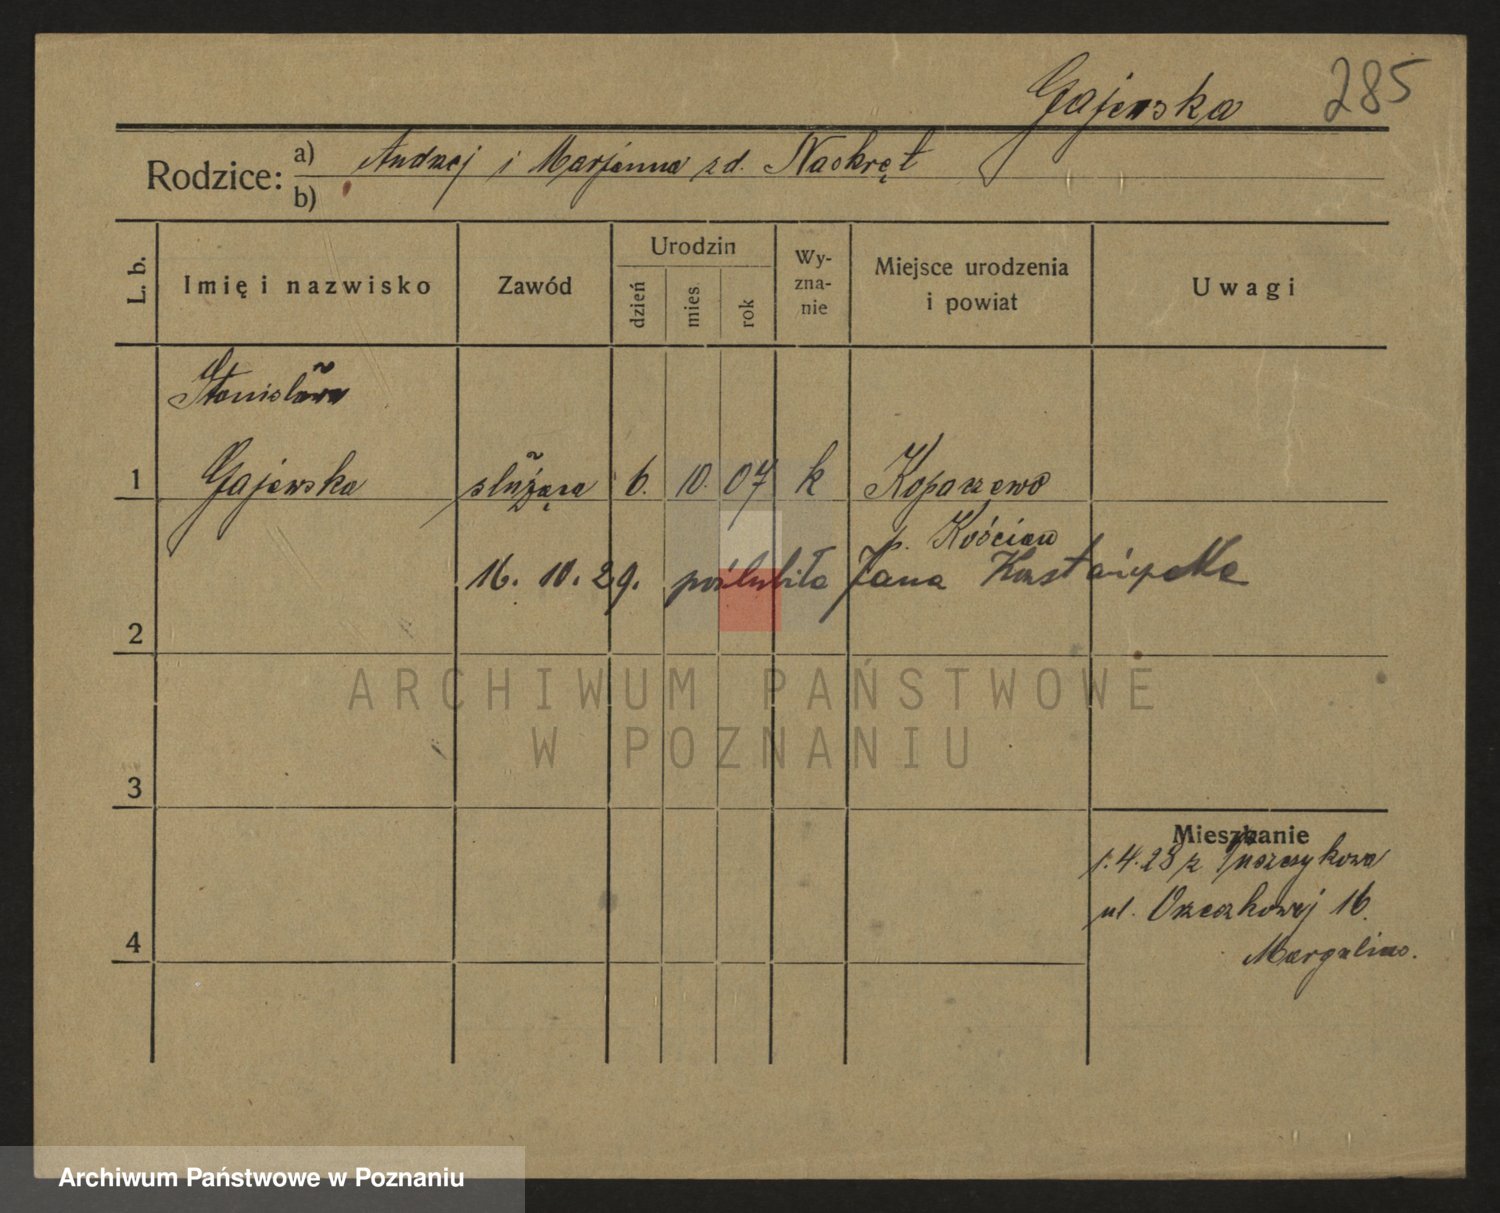 Gajewska 285
Rodzice: a) Andrzej i Marjanna zd. Naskręt
b)
L. b. Imię i nazwisko Zawód Urodzin dzień mies. rok Wyznanie Miejsce urodzenia i powiat Uwagi
Stanisława
1 Gajewska służąca 6. 10. 07 k Kopaszewo
p. Kościan
16. 10. 29. poślubiła Jana
2
ARCHIWUM PAŃSTWOWE
W POZNANIU
3
Mieszkanie
1.4.28 z
ul. 16.
4
Archiwum Państwowe w Poznaniu